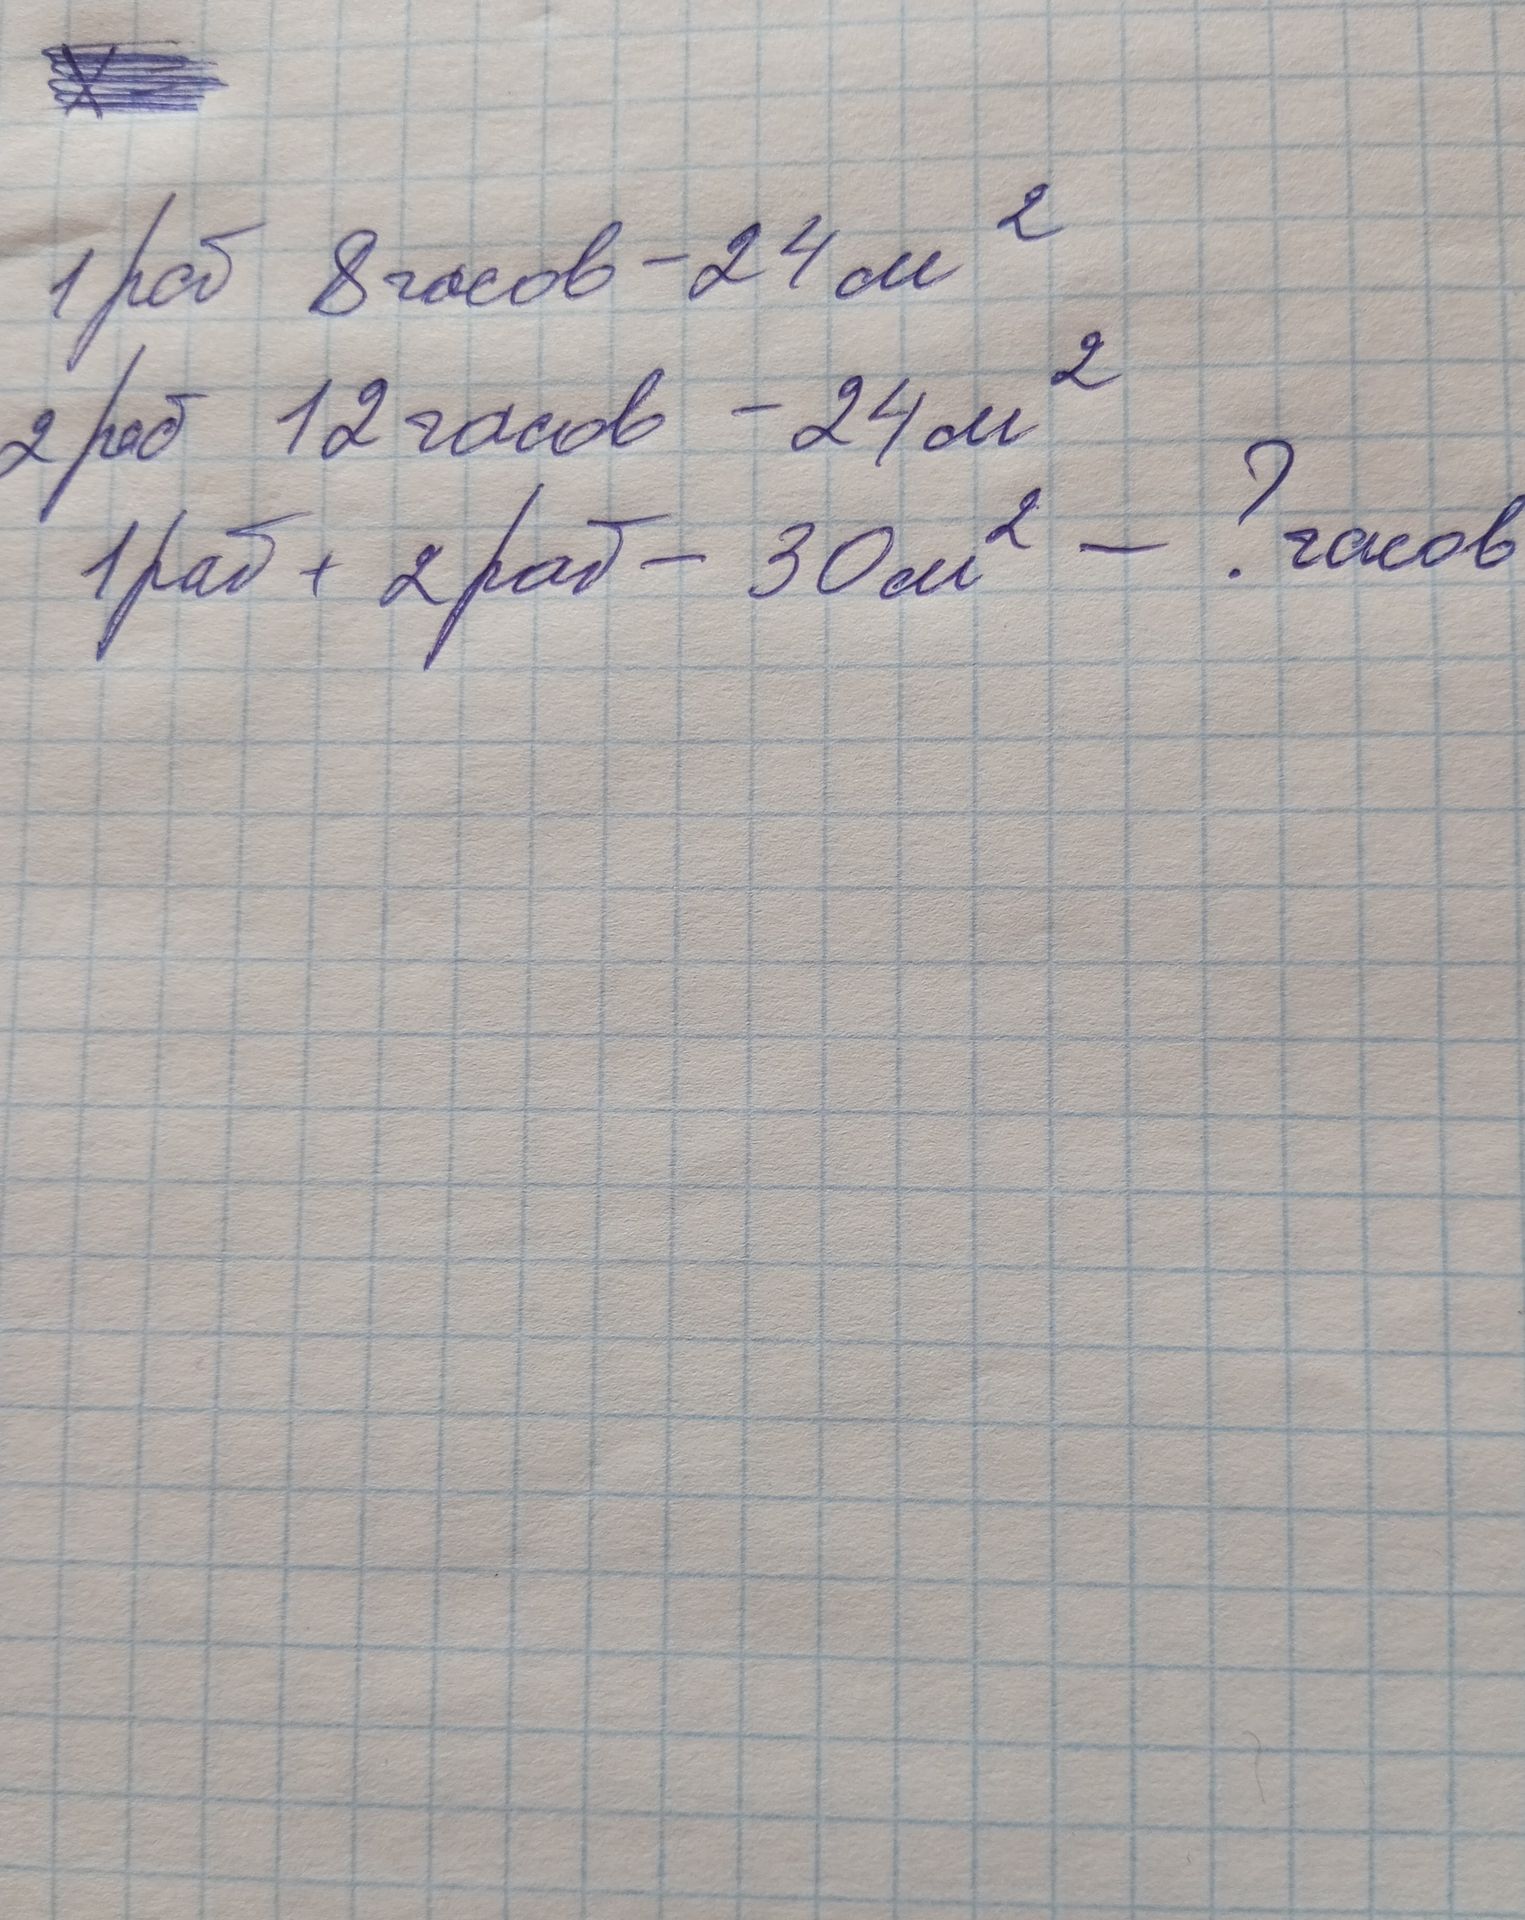 1 раб 8 часов - 24 м²
2 раб 12 часов - 24 м²
1 раб + 2 раб - 30 м² - ? часов